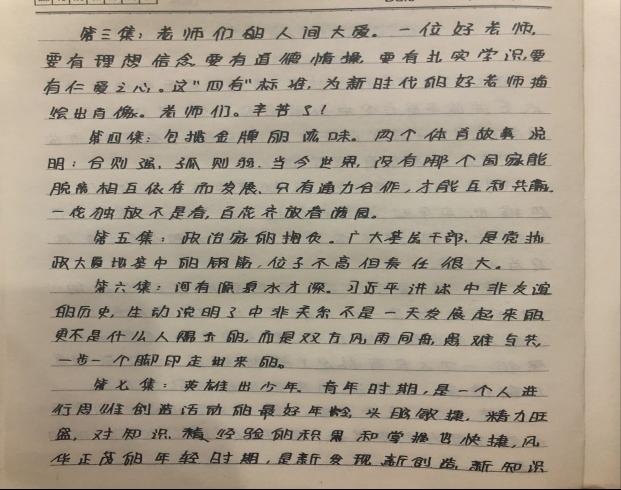 第三集：老师们的人间大爱。一位好老师，
要有理想信念、要有道德情操、要有扎实学识、要
有仁爱之心。这“四有”标准，为新时代的好老师描
绘出肖像。老师们。辛苦了！
第四集：包揽金牌的滋味。两个体育故事说
明：合则强、孤则弱。当今世界，没有哪个国家能
脱离相互依存而发展、只有通力合作，才能互利共赢。
一花独放不是春，百花齐放春满园。
第五集：政治家的抱负。广大基层干部、是党执
政大厦地基中的钢筋，位子不高但责任很大。
第六集：河有源泉水才深。习近平讲述中非友谊
的历史，生动说明了中非关系不是一天发展起来的
更不是什么人赐予的，而是双方风雨同舟，患难与共，
一步一个脚印走出来的。
第七集：英雄出少年。青年时期，是一个人进
行思维创造活动的最好年龄，头脑敏捷，精力旺
盛，对知识、经验的积累和掌握也快捷，风
华正茂的年轻时期，是新发现、新创造、新知识